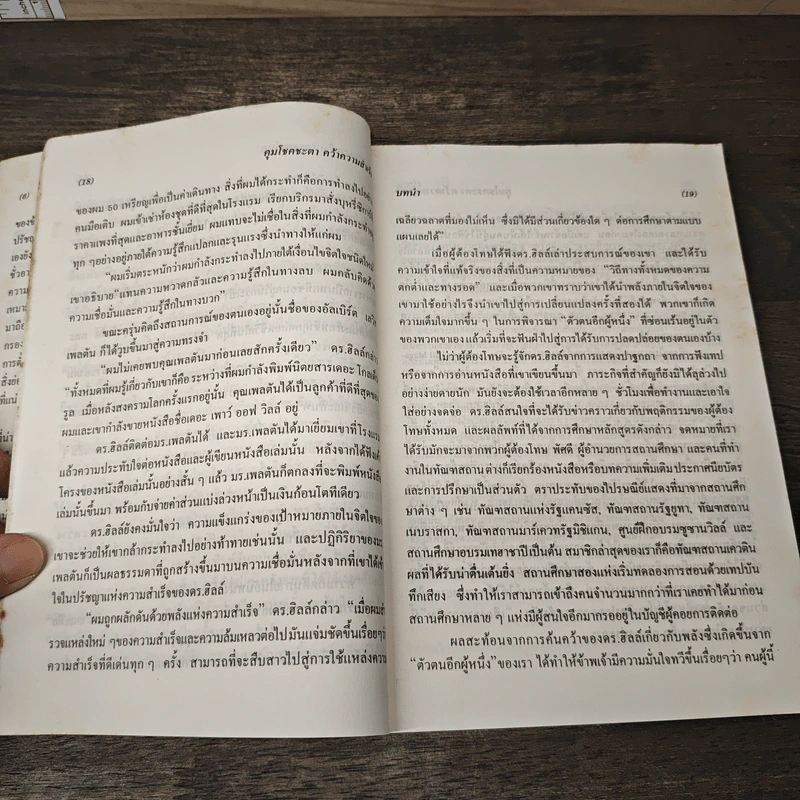 (6)
(18)
คุมโชคชะตา คว้าความสำเร็จ
ของผม 50 เหรียญเพื่อเป็นค่าเดินทาง สิ่งที่ผมได้กระทำก็คือการทำลงไป
คนมือเติบ ผมเข้าเช่าห้องชุดที่ดีที่สุดในโรงแรม เรียกบริกรมาสั่งบุหรี่ซิการ์
ราคาแพงที่สุดและอาหารชั้นเยี่ยม ผมแทบจะไม่เชื่อในสิ่งที่ผมกำลังกระทำ
ทุก ๆอย่างอยู่ภายใต้ความรู้สึกแปลกและรุนแรงซึ่งนำทางให้แก่ผม
"ผมเริ่มตระหนักว่าผมกำลังกระทำลงไปภายใต้เงื่อนไขจิตใจชนิดใหม่
เขาอธิบาย"แทนความหวาดกลัวและความรู้สึกในทางลบ ผมกลับคิดด้วย
ความเชื่อมั่นและความรู้สึกในทางบวก"
ขณะครุ่นคิดถึงสถานการณ์ของตนเองอยู่นั้นชื่อของอัลเบิร์ต
เพลตัน ก็ได้วูบขึ้นมาสู่ความทรงจำ
"ผมไม่เคยพบคุณเพลตันมาก่อนเลยสักครั้งเดียว" ดร.ฮิลล์กล่าว
"ทั้งหมดที่ผมรู้เกี่ยวกับเขาก็คือระหว่างที่ผมกำลังพิมพ์นิตยสารเดอะ โกลเด้น
รูล เมื่อหลังสงครามโลกครั้งแรกอยู่นั้น คุณเพลตันได้เป็นลูกค้าที่ดีที่สุดของ
ผมและเขากำลังขายหนังสือชื่อเดอะ เพาว์ ออฟ วิลล์ อยู่
ดร.ฮิลล์ติดต่อมร.เพลตันได้ และมร.เพลตันได้มาเยี่ยมเขาที่โรงแรม
แล้วความประทับใจต่อหนังสือและผู้เขียนหนังสือเล่มนั้น หลังจากได้ฟัง
โครงของหนังสือเล่มนั้นอย่างสั้น ๆ แล้ว มร.เพลตันก็ตกลงที่จะพิมพ์หนังสือ
เล่มนั้นขึ้นมา พร้อมกับจ่ายค่าส่วนแบ่งล่วงหน้าเป็นเงินก้อนโตทีเดียว
ดร.ฮิลล์ยังคงมั่นใจว่า ความแข็งแกร่งของเป้าหมายภายในจิตใจของ
เขาจะช่วยให้เขากล้ากระทำลงไปอย่างท้าทายเช่นนั้น และปฏิกิริยาของมร.
เพลตันก็เป็นผลธรรมดาที่ถูกสร้างขึ้นมาบนความเชื่อมั่นหลังจากที่เขาได้เข้า
ใจในปรัชญาแห่งความสำเร็จของดร.ฮิลล์
"ผมถูกผลักดันด้วยพลังแห่งความสำเร็จ" ดร.ฮิลล์กล่าว "เมื่อผมสำ
รวจแหล่งใหม่ ๆของความสำเร็จและความล้มเหลวต่อไปมันแจ่มชัดขึ้นเรื่อยๆว่า
ความสำเร็จที่ดีเด่นทุก ๆ ครั้ง สามารถที่จะสืบสาวไปสู่การใช้แหล่งความ
บทนำ
(19)
เฉลียวฉลาดที่มองไม่เห็น ซึ่งมิได้มีส่วนเกี่ยวข้องใด ๆ ต่อการศึกษาตามแบบ
แผนเลยได้"
เมื่อผู้ต้องโทษได้ฟังดร.ฮิลล์เล่าประสบการณ์ของเขา และได้รับ
ความเข้าใจที่แท้จริงของสิ่งที่เป็นความหมายของ "วิถีทางทั้งหมดของความ
ตกต่ำและทางรอด" และเมื่อพวกเขาทราบว่าเขาได้นำพลังภายในจิตใจของ
เขามาใช้อย่างไรจึงนำเขาไปสู่การเปลี่ยนแปลงครั้งที่สองได้ พวกเขาก็เกิด
ความเต็มใจมากขึ้น ๆ ในการพิจารณา "ตัวตนอีกผู้หนึ่ง" ที่ซ่อนเร้นอยู่ในตัว
ของพวกเขาเอง แล้วเริ่มที่จะฟันฝ่าไปสู่การปลดปล่อยของตนเองบ้าง
ไม่ว่าผู้ต้องโทษจะรู้จักดร.ฮิลล์จากการแสดงปาฐกถา จากการฟังเทป
หรือจากการอ่านหนังสือที่เขาเขียนขึ้นมา ภาระกิจที่สำคัญก็ยังมิได้ลุล่วงไป
อย่างง่ายดายนัก มันยังจะต้องใช้เวลาอีกหลาย ๆ ชั่วโมงเพื่อทำงานและเอาใจ
ใส่อย่างจดจ่อ ดร.ฮิลล์สนใจที่จะได้รับข่าวคราวเกี่ยวกับพฤติกรรมของผู้ต้อง
โทษทั้งหมด และผลลัพท์ที่ได้จากการศึกษาหลักสูตรดังกล่าว จดหมายที่เรา
ได้รับมักจะมาจากพวกผู้ต้องโทษ พัศดี ผู้อำนวยการสถานศึกษา และคนที่ทำ
งานในทัณฑสถาน ต่างก็เรียกร้องหนังสือหรือบทความเพิ่มเติม ประกาศนียบัตร
และการปรึกษาเป็นส่วนตัว ตราประทับของไปรษณีย์แสดงที่มาจากสถานศึก
ษาต่าง ๆ เช่น ทัณฑสถานแห่งรัฐแคนซัส, ทัณฑสถานรัฐยูทา, ทัณฑสถาน
เนบราสกา, ทัณฑสถานมาร์เควทรัฐมิชิแกน, ศูนย์ฝึกอบรมซูซานวิลล์ และ
สถานศึกษาอบรมเทฮาชาปีเป็นต้น สมาชิกล่าสุดของเราก็คือทัณฑสถานเควติน
ผลที่ได้รับน่าตื่นเต้นยิ่ง สถานศึกษาสองแห่งเริ่มทดลองการสอนด้วยเทปบัน
ทึกเสียง ซึ่งทำให้เราสามารถเข้าถึงคนจำนวนมากกว่าที่เราเคยทำได้มาก่อน
สถานศึกษาหลาย ๆ แห่งมีผู้สนใจอีกมากรออยู่ในบัญชีผู้คอยการติดต่อ
ผลสะท้อนจากการค้นคว้าของดร.ฮิลล์เกี่ยวกับพลังซึ่งเกิดขึ้นจาก
"ตัวตนอีกผู้หนึ่ง"ของเรา ได้ทำให้ข้าพเจ้ามีความมั่นใจทวีขึ้นเรื่อยๆว่า คนผู้นี้